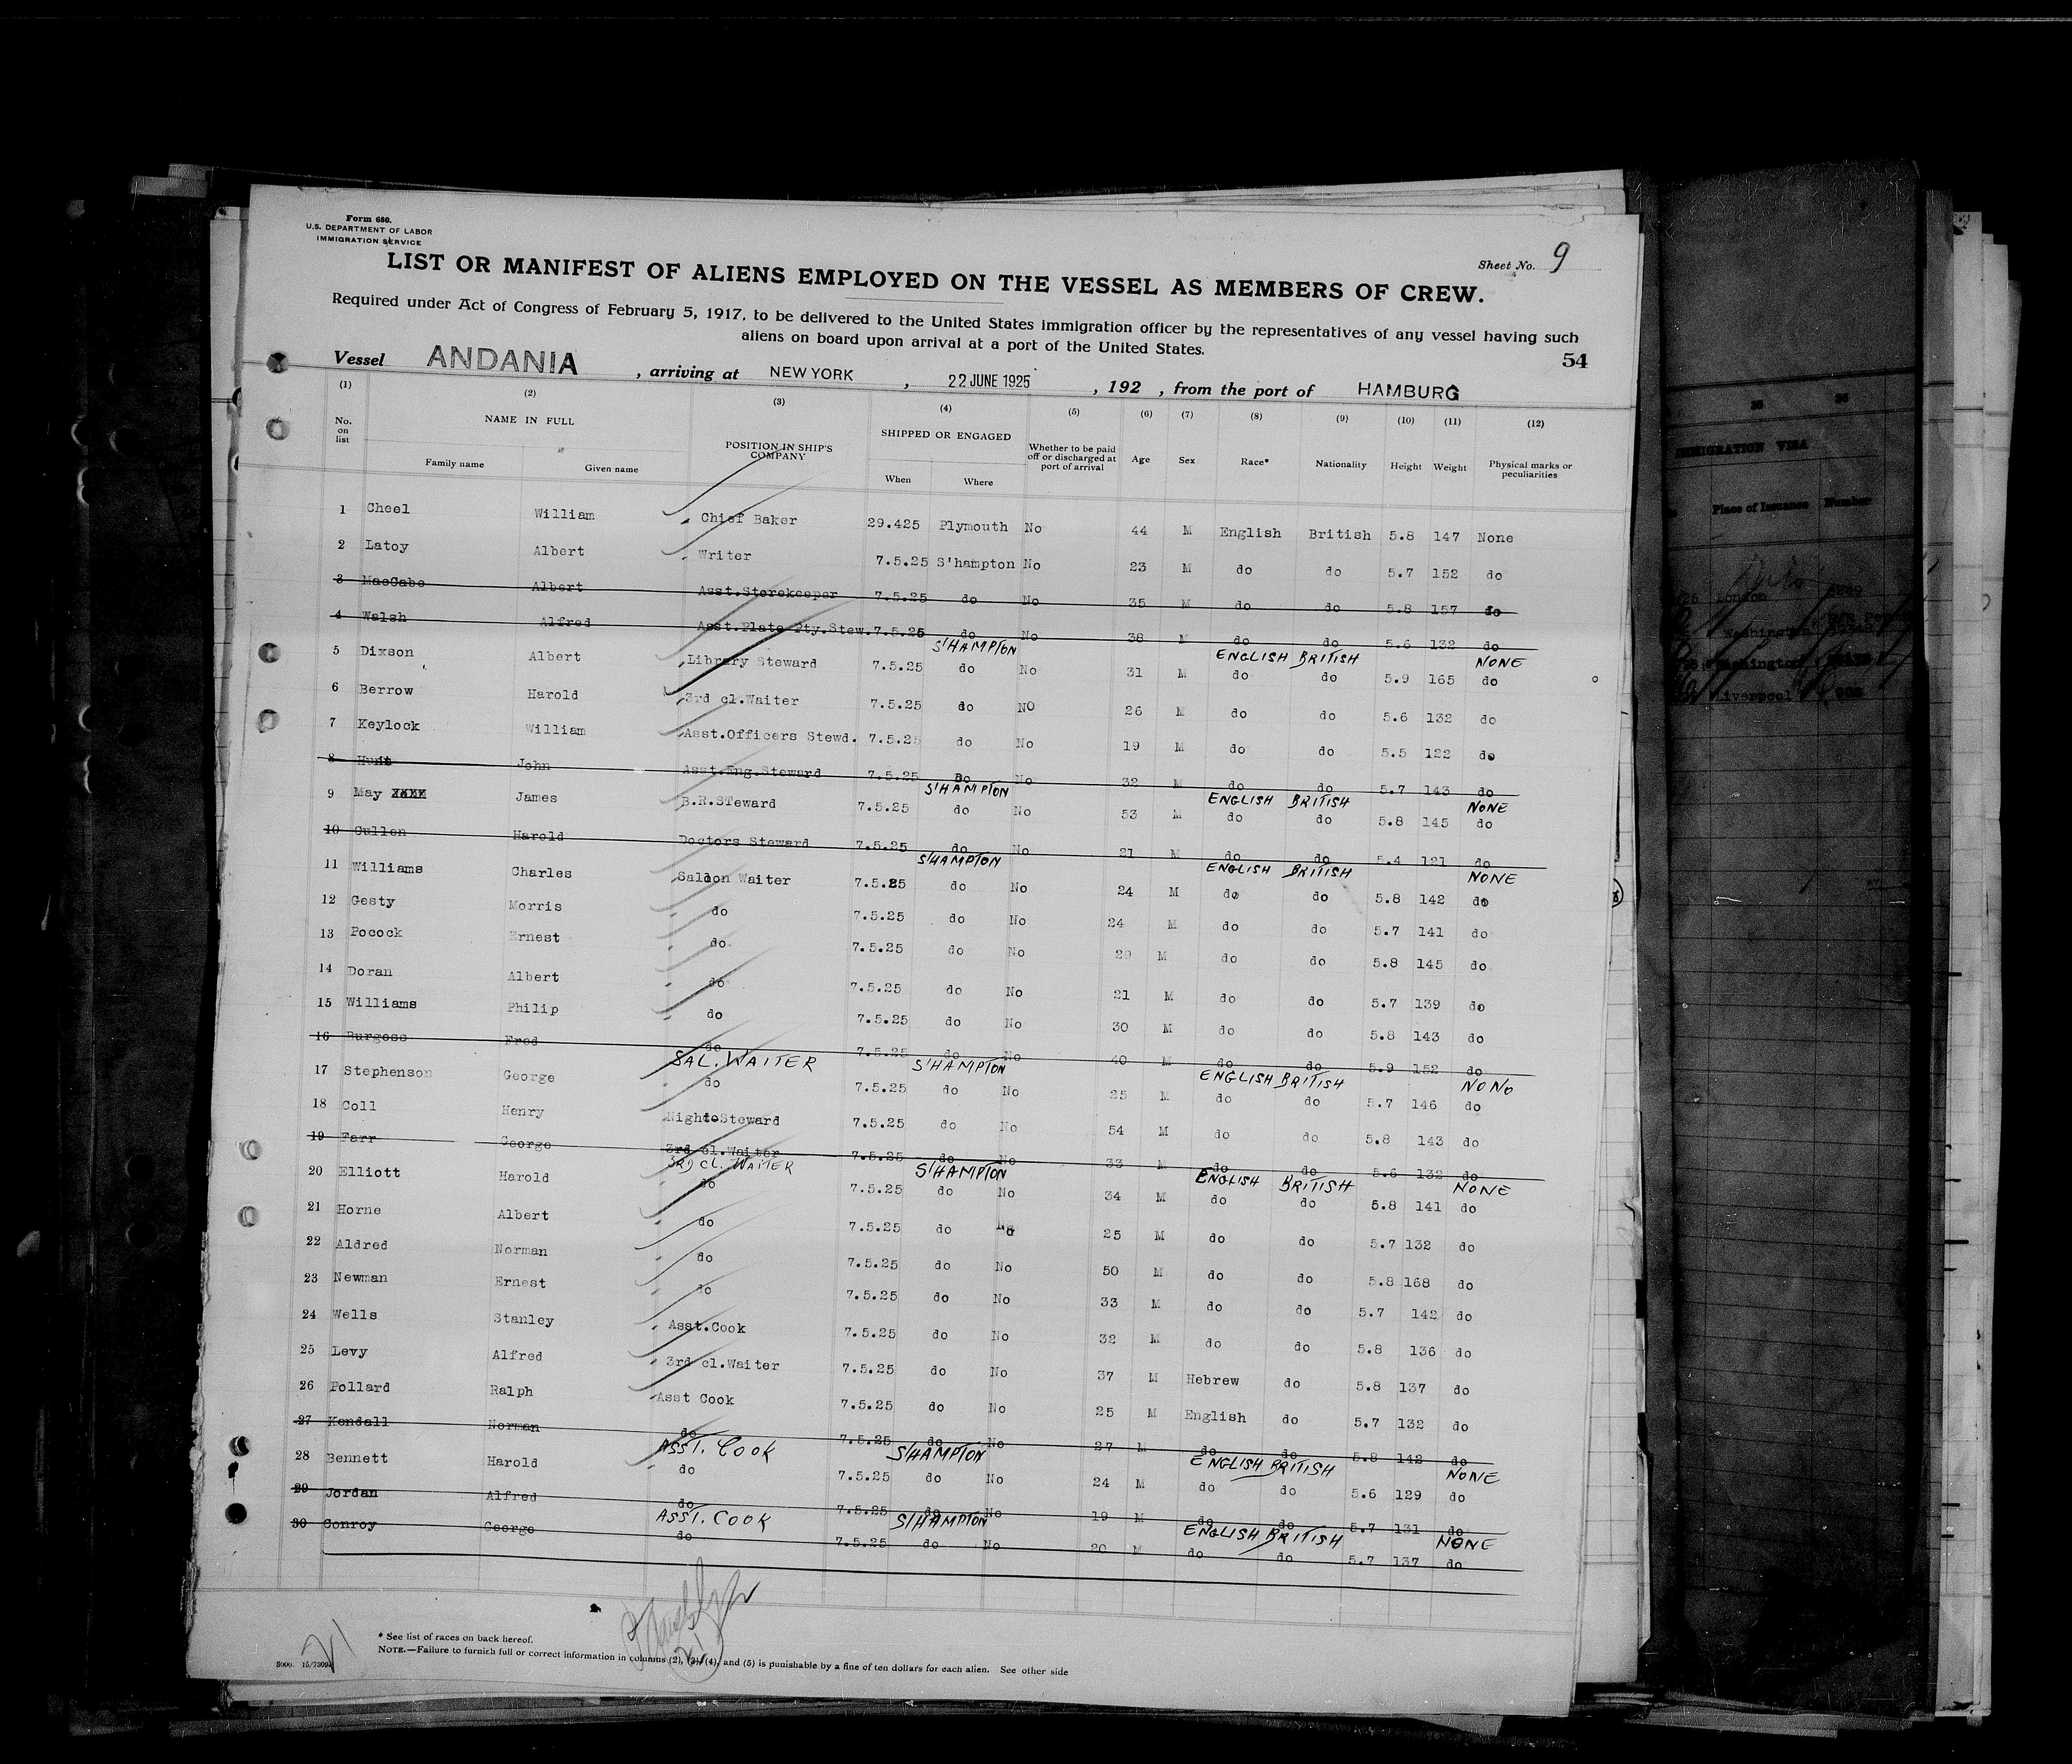 Form 680.
U.S. DEPARTMENT OF LABOR
IMMIGRATION SERVICE
Sheet No. 9
LIST OR MANIFEST OF ALIENS EMPLOYED ON THE VESSEL AS MEMBERS OF CREW.
Required under Act of Congress of February 5, 1917, to be delivered to the United States immigration officer by the representatives of any vessel having such
aliens on board upon arrival at a port of the United States.
54
Vessel ANDANIA , arriving at NEW YORK , 22 JUNE 1925 , 192 , from the port of HAMBURG
(1) (2) (3) (4) (5) (6) (7) (8) (9) (10) (11) (12)
No. on list NAME IN FULL POSITION IN SHIP'S COMPANY SHIPPED OR ENGAGED Whether to be paid off or discharged at port of arrival Age Sex Race* Nationality Height Weight Physical marks or peculiarities
Family name Given name When Where
1 Cheel William Chief Baker 29.425 Plymouth No 44 M English British 5.8 147 None
2 Latoy Albert Writer 7.5.25 S'hampton No 23 M do do 5.7 152 do
3 MacCabe Albert Asst.Storekeeper 7.5.25 do No 35 M do do 5.8 157 do
4 Walsh Alfred Asst.Plate Pty.Stew. 7.5.25 do No 38 M do do 5.6 132 do
S'HAMPTON ENGLISH BRITISH NONE
5 Dixson Albert Library Steward 7.5.25 do No 31 M do do 5.9 165 do
6 Berrow Harold 3rd cl.Waiter 7.5.25 do NO 26 M do do 5.6 132 do
7 Keylock William Asst.Officers Stewd. 7.5.25 do No 19 M do do 5.5 122 do
8 Hunt John Asst.Eng.Steward 7.5.25 Do No 32 M do do 5.7 143 do
S'HAMPTON ENGLISH BRITISH NONE
9 May James B.R.STeward 7.5.25 do No 53 M do do 5.8 145 do
10 Cullen Harold Doctors Steward 7.5.25 do No 21 M do do 5.4 121 do
S'HAMPTON ENGLISH BRITISH NONE
11 Williams Charles Saloon Waiter 7.5.25 do No 24 M do do 5.8 142 do
12 Gesty Morris do 7.5.25 do No 24 M do do 5.7 141 do
13 Pocock Ernest do 7.5.25 do No 29 M do do 5.8 145 do
14 Doran Albert do 7.5.25 do No 21 M do do 5.7 139 do
15 Williams Philip do 7.5.25 do No 30 M do do 5.8 143 do
16 Burgess Fred do 7.5.25 do No 40 M do do 5.9 152 do
SAL. WAITER S'HAMPTON ENGLISH BRITISH NONO
17 Stephenson George do 7.5.25 do No 25 M do do 5.7 146 do
18 Coll Henry Night Steward 7.5.25 do No 54 M do do 5.8 143 do
19 Farr George 3rd cl.Waiter 7.5.25 do No 33 M do do 5.6 132 do
3RD CL. WAITER S'HAMPTON ENGLISH BRITISH NONE
20 Elliott Harold do 7.5.25 do No 34 M do do 5.8 141 do
21 Horne Albert do 7.5.25 do No 25 M do do 5.7 132 do
22 Aldred Norman do 7.5.25 do No 50 M do do 5.8 168 do
23 Newman Ernest do 7.5.25 do No 33 M do do 5.7 142 do
24 Wells Stanley Asst.Cook 7.5.25 do No 32 M do do 5.8 136 do
25 Levy Alfred 3rd cl.Waiter 7.5.25 do No 37 M Hebrew do 5.8 137 do
26 Pollard Ralph Asst Cook 7.5.25 do No 25 M English do 5.7 132 do
27 Kendall Norman do 7.5.25 do No 27 M do do 5.8 142 do
ASST. COOK S'HAMPTON ENGLISH BRITISH NONE
28 Bennett Harold do 7.5.25 do No 24 M do do 5.6 129 do
29 Jordan Alfred do 7.5.25 do No 19 M do do 5.7 131 do
ASST. COOK S'HAMPTON ENGLISH BRITISH NONE
30 Conroy George do 7.5.25 do No 20 M do do 5.7 137 do
21
* See list of races on back hereof.
NOTE.—Failure to furnish full or correct information in columns (2), (3), (4), and (5) is punishable by a fine of ten dollars for each alien. See other side
IMMIGRATION VISA
Place of Issuance Number
London
Washington
Washington
Liverpool